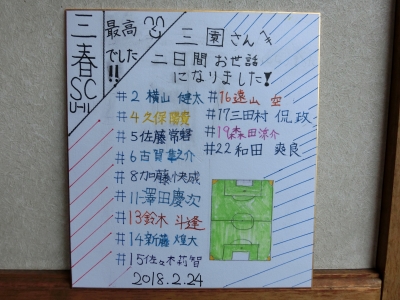 三春SC
U-11
最高
でした!!
三園さんへ
二日間お世話
になりました!
#2 横山 健太
#4 久保勝貴
#5 佐藤常磐
#6 古賀隼之介
#8 加藤快成
#11 澤田慶次
#13 鈴木 斗逢
#14 新藤 煌大
#15 佐々木莉智
#16 遠山 空
#17 三田村 侃政
#19 森田涼介
#22 和田 爽良
2018.2.24